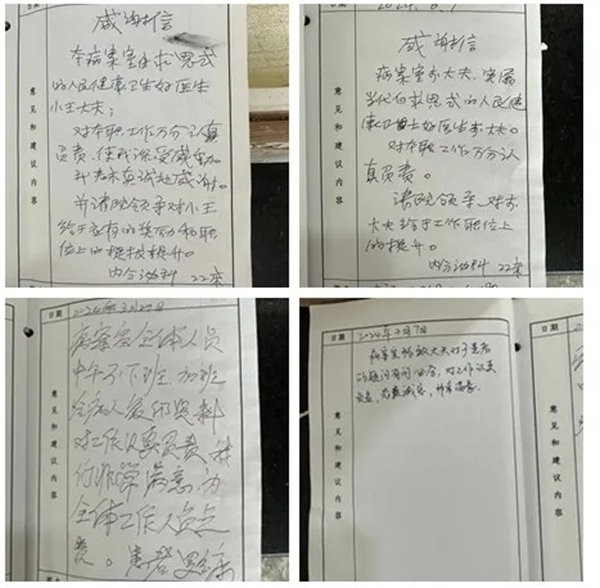 意见和建议内容
感谢信
本病案室的白求恩式
的人民健康卫生好医生
小王大夫：
对本职工作万分认真
负责，使我深受感动。
我表示真诚地感谢。
并请院领导对小王
给于应有的奖励和职
位上的提拔提升。
内分泌科 22床
意见和建议内容
感谢信
病案室 大夫，实属
当代白求恩式的人民健
康卫士好医生 大夫。
对本职工作万分认
真负责。
请院领导 对
大夫给于工作职位上
的提升。
内分泌科 22床
日期
2024年3月27日
意见和建议内容
病案室全体人员
中午不下班，加班
给病人复印资料
对工作认真负责，我
们非常满意，为
全体工作人员点
赞。患者
日期
2024年 月7日
意见和建议内容
病案室 大夫对于患者
的疑问有问必答，对工作认真
负责，